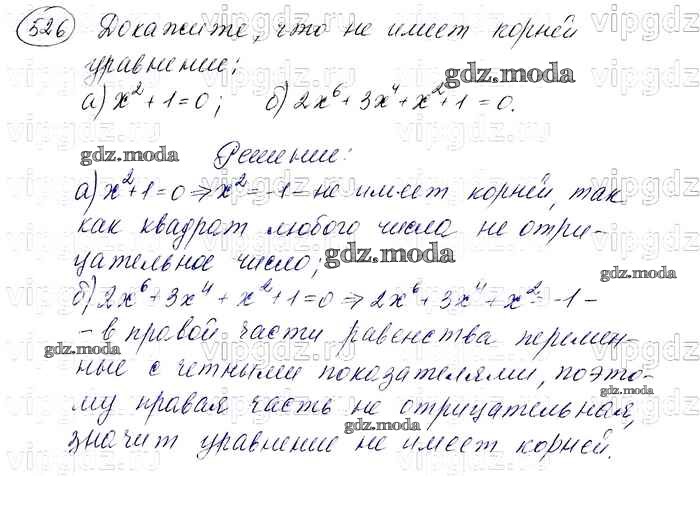 526 Докажите, что не имеет корней
уравнение:
а) x² + 1 = 0; б) 2x⁶ + 3x⁴ + x² + 1 = 0.
Решение:
а) x² + 1 = 0 ⇒ x² = -1 - не имеет корней, так
как квадрат любого числа не отри-
цательное число;
б) 2x⁶ + 3x⁴ + x² + 1 = 0 ⇒ 2x⁶ + 3x⁴ + x² = -1 -
- в правой части равенства перемен-
ные с четными показателями, поэто-
му правая часть не отрицательная,
значит уравнение не имеет корней.
gdz.moda
gdz.moda
gdz.moda
gdz.moda
gdz.moda
gdz.moda
gdz.moda
vipgdz.ru